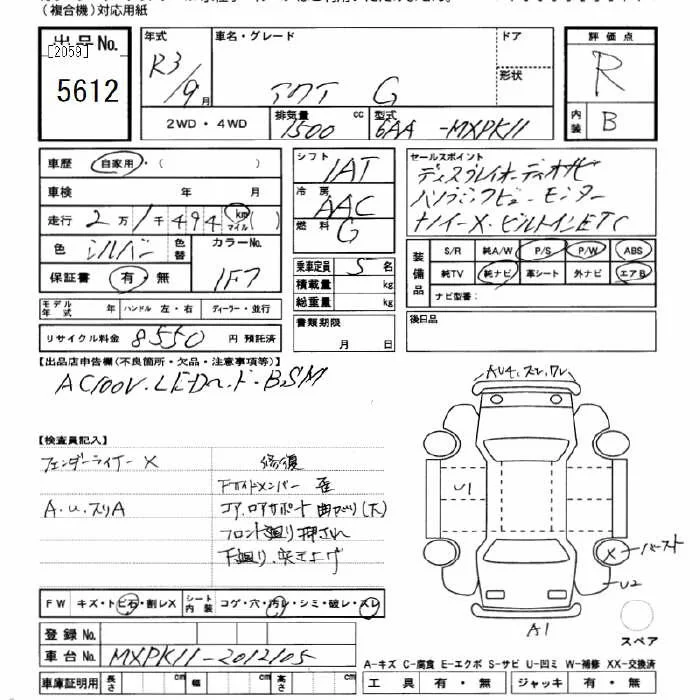 （複合機）対応用紙
出品No.
[2059]
5612
年式
R3/9月
車名・グレード
アクア G
ドア
形状
2WD・4WD
排気量 1500 cc
型式 6AA-MXPK11
評価点
R
内装 B
車歴 自家用・( )
車検 年 月
走行 2万1千494 km マイル( )
色 シルバー 色替 カラーNo. 1F7
保証書 有・無
モデル年式 年 ハンドル 左・右 ディーラー・並行
リサイクル料金 8550 円 預託済
シフト IAT
冷房 AAC
燃料 G
乗車定員 5 名
積載量 kg
総重量 kg
書類期限
月 日
セールスポイント
ディスプレイオーディオナビ
パノラミックビューモニター
ナノイーX・ビルトインETC
装備品
S/R 純A/W P/S P/W ABS
純TV 純ナビ 革シート 外ナビ エアB
ナビ型番：
後日品
【出品店申告欄（不良箇所・欠品・注意事項等）】
AC100V.LEDヘッド・BSM
【検査員記入】
フェンダーライナー X
A.U.スリA
修復
Fサイドメンバー 歪
コア.ロアサポート 曲がり(大)
フロント廻り押され
下廻り.突き上げ
FW キズ・トビ石・割レX
シート内装 コゲ・穴・汚レ・シミ・破レ・スレ
登録No.
車台No. MXPK11-2012105
車庫証明用 長さ cm 幅 cm 高さ cm
AU4.スレ.ワレ
U1
X バースト
U2
A1
スペア
A-キズ C-腐食 E-エクボ S-サビ U-凹ミ W-補修 XX-交換済
工具 有・無 ジャッキ 有・無